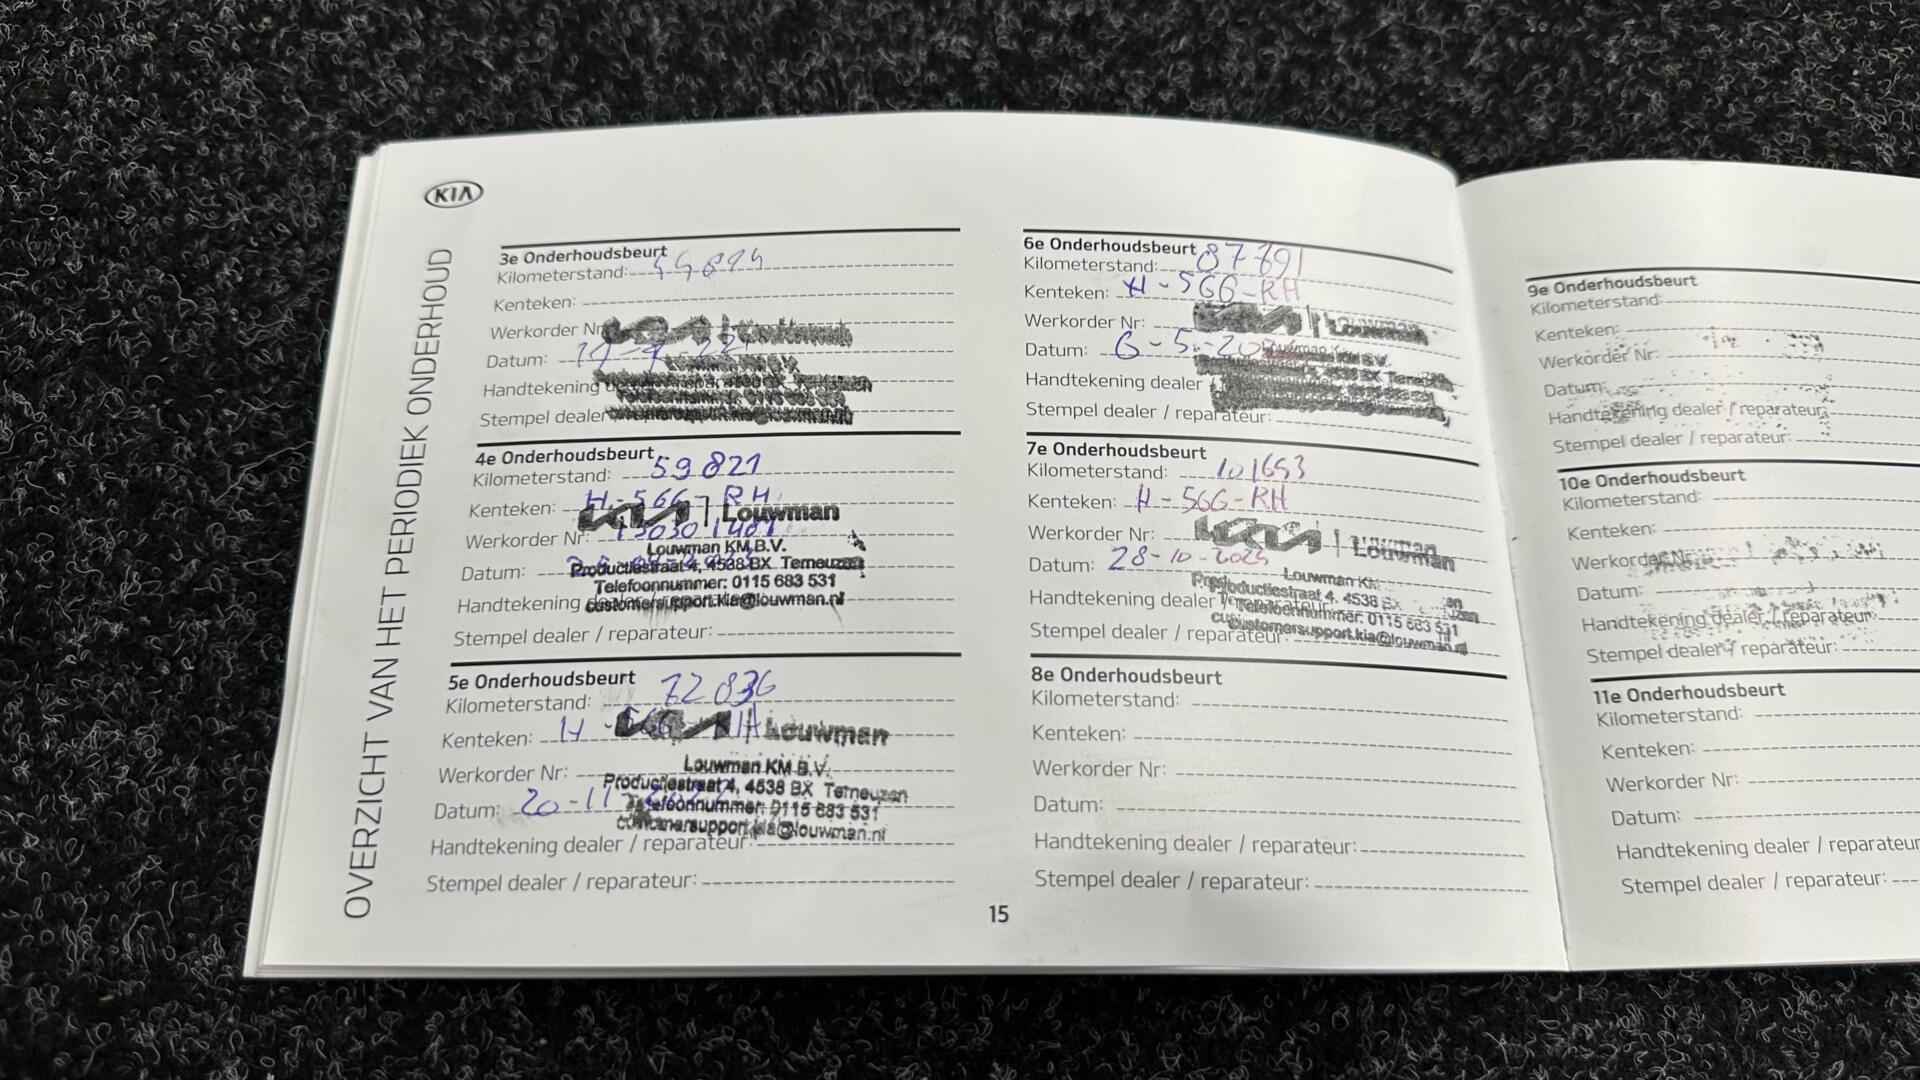 KIA
OVERZICHT VAN HET PERIODIEK ONDERHOUD
3e Onderhoudsbeurt
Kilometerstand:
Kenteken:
Werkorder Nr
Datum:
Handtekening
Stempel dealer
4e Onderhoudsbeurt
Kilometerstand: 59821
Kenteken: H-566-RH
KIA | Louwman
Werkorder Nr:
Louwman KM B.V.
Datum:
Productiestraat 4, 4538 BX Terneuzen
Telefoonnummer: 0115 683 531
Handtekening dealer / reparateur:
customersupport.kia@louwman.nl
Stempel dealer / reparateur:
5e Onderhoudsbeurt
Kilometerstand: 72836
Kenteken: H-
KIA | Louwman
Werkorder Nr:
Louwman KM B.V.
Productiestraat 4, 4538 BX Terneuzen
Datum: 20-11-
Telefoonnummer: 0115 683 531
customersupport.kia@louwman.nl
Handtekening dealer / reparateur:
Stempel dealer / reparateur:
6e Onderhoudsbeurt
Kilometerstand:
Kenteken: H-566-RH
Werkorder Nr:
KIA | Louwman
Datum: 6-5-20
Handtekening dealer /
Stempel dealer / reparateur:
7e Onderhoudsbeurt
Kilometerstand: 101653
Kenteken: H-566-RH
Werkorder Nr:
KIA | Louwman
Datum: 28-10-2025
Louwman KM
Productiestraat 4, 4538 BX
Handtekening dealer /
Telefoonnummer: 0115 683 531
customersupport.kia@louwman.nl
Stempel dealer / reparateur:
8e Onderhoudsbeurt
Kilometerstand:
Kenteken:
Werkorder Nr:
Datum:
Handtekening dealer / reparateur:
Stempel dealer / reparateur:
15
9e Onderhoudsbeurt
Kilometerstand:
Kenteken:
Werkorder Nr:
Datum:
Handtekening dealer / reparateur:
Stempel dealer / reparateur:
10e Onderhoudsbeurt
Kilometerstand:
Kenteken:
Werkorder Nr:
Datum:
Handtekening dealer / reparateur:
Stempel dealer / reparateur:
11e Onderhoudsbeurt
Kilometerstand:
Kenteken:
Werkorder Nr:
Datum:
Handtekening dealer / reparateur
Stempel dealer / reparateur: